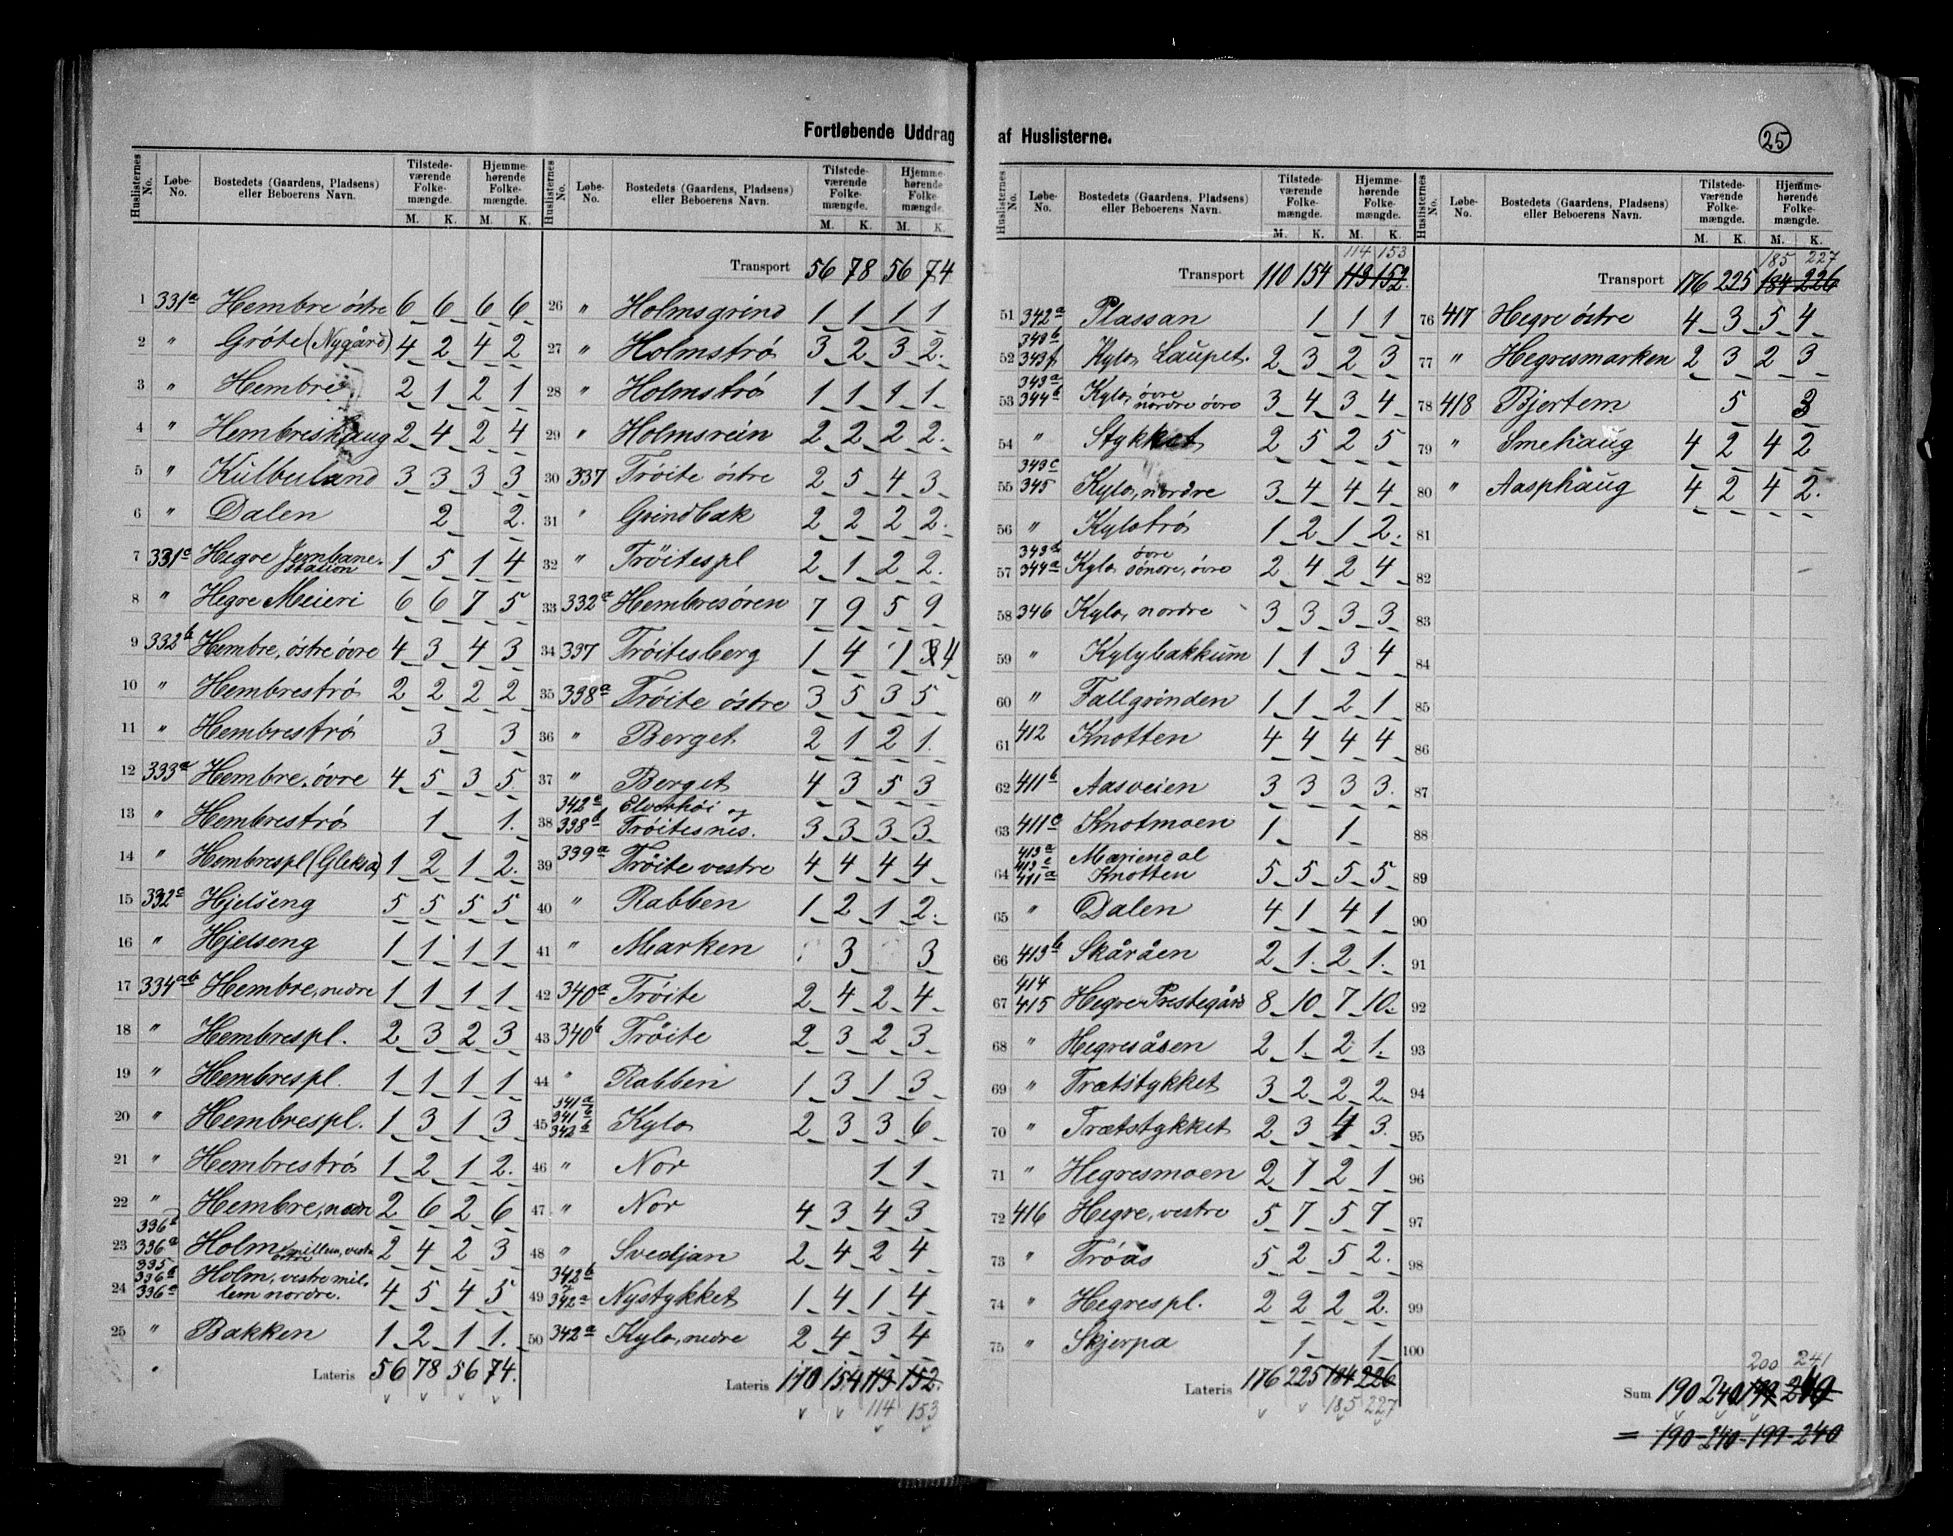 Fortløbende Uddrag af Huslisterne.
25
Huslisternes No. Løbe-No. Bostedets (Gaardens, Pladsens) eller Beboerens Navn. Tilstedeværende Folkemængde. M. K. Hjemmehørende Folkemængde. M. K.
1 331a Hembre østre 6 6 6 6
2 " Gröte (Nygård) 4 2 4 2
3 " Hembre 2 1 2 1
4 " Hembreshaug 2 4 2 4
5 " Kulbuland 3 3 3 3
6 " Dalen 2 2
7 331c Hegre Jernbanestasion 1 5 1 4
8 " Hegre Meieri 6 6 7 5
9 332b Hembre, östre övre 4 3 4 3
10 " Hembreströ 2 2 2 2
11 " Hembreströ 3 3
12 333a Hembre, övre 4 5 3 5
13 " Hembreströ 1 1
14 " Hembrespl (Gleksa) 1 2 1 2
15 332c Hjelseng 5 5 5 5
16 " Hjelseng 1 1 1 1
17 334ab Hembre, nedre 1 1 1 1
18 " Hembrespl. 2 3 2 3
19 " Hembrespl. 1 1 1 1
20 " Hembrespl. 1 3 1 3
21 " Hembreströ 1 2 1 2
22 " Hembre, nedre 2 6 2 6
23 336a 336a Holm millem, vestre östre 2 4 2 3
24 335 336b 336a Holm, vestre millem nordre. 4 5 4 5
25 " Bakken 1 2 1 1
Lateris 56 78 56 74.
Huslisternes No. Løbe-No. Bostedets (Gaardens, Pladsens) eller Beboerens Navn. Tilstedeværende Folkemængde. M. K. Hjemmehørende Folkemængde. M. K.
Transport 56 78 56 74
26 " Holmsgrind 1 1 1 1
27 " Holmströ 3 2 3 2
28 " Holmströ 1 1 1 1
29 " Holmsvein 2 2 2 2
30 337 Tröite östre 2 5 4 3
31 " Grindbak 2 2 2 2
32 " Tröitespl 2 1 2 2
33 332a Hembresören 7 9 5 9
34 337 Tröitesberg 1 4 1 4
35 338a Tröite östre 3 5 3 5
36 " Berget 2 1 2 1
37 " Berget 4 3 5 3
38 342a 338b Elverhöi og Tröitesnes. 3 3 3 3
39 339a Tröite vestre 4 4 4 4
40 " Rabben 1 2 1 2
41 " Marken 3 3
42 340a Tröite 2 4 2 4
43 340b Tröite 2 3 2 3
44 " Rabben 1 3 1 3
45 341a 341b 342b Kylo 2 3 3 6
46 " Nor 1 1
47 " Nor 4 3 4 3
48 " Svedjan 2 4 2 4
49 342b 342a Nystykket 1 4 1 4
50 342a Kylo, nedre 2 4 3 4
Lateris 110 154 113 152.
114 153
Huslisternes No. Løbe-No. Bostedets (Gaardens, Pladsens) eller Beboerens Navn. Tilstedeværende Folkemængde. M. K. Hjemmehørende Folkemængde. M. K.
114 153
Transport 110 154 113 152
51 342a Plassan 1 1 1
52 343b 343f Kylo Laupet. 2 3 2 3
53 343a 344b Kylo, övre nordre övre 3 4 3 4
54 " Stykket 2 5 2 5
55 343c 345 Kylo, nordre 3 4 4 4
56 " Kyloströ 1 2 1 2
57 343b 344a Kylo övre söndre, övre 2 4 2 4
58 346 Kylo, nordre 3 3 3 3
59 " Kylybakkum 1 1 3 4
60 " Fallgrinden 1 1 2 1
61 412 Knotten 4 4 4 4
62 411b Aasveien 3 3 3 3
63 411c Knotmoen 1 1
64 413a 413c 411a Mariendal Knotten 5 5 5 5
65 " Dalen 4 1 4 1
66 413b Skåråen 2 1 2 1
67 414 415 Hegre Prestegård 8 10 7 10
68 " Hegresåsen 2 1 2 1
69 " Trætstykket 3 2 2 2
70 " Trætstykket 2 3 4 3
71 " Hegresmoen 2 1 2 1
72 416 Hegre, vestre 5 7 5 7
73 " Tröås 5 2 5 2
74 " Hegrespl. 2 2 2 2
75 " Skjerpa 1 1
Lateris 176 225 184 226
185 227
Huslisternes No. Løbe-No. Bostedets (Gaardens, Pladsens) eller Beboerens Navn. Tilstedeværende Folkemængde. M. K. Hjemmehørende Folkemængde. M. K.
185 227
Transport 176 225 184 226
76 417 Hegre östre 4 3 5 4
77 " Hegresmarken 2 3 2 3
78 418 Bjertem 5 3
79 " Smehaug 4 2 4 2
80 " Aasphaug 4 2 4 2
81
82
83
84
85
86
87
88
89
90
91
92
93
94
95
96
97
98
99
100
200 241
Sum 190 240 199 240
= 190 - 240 - 199 - 240